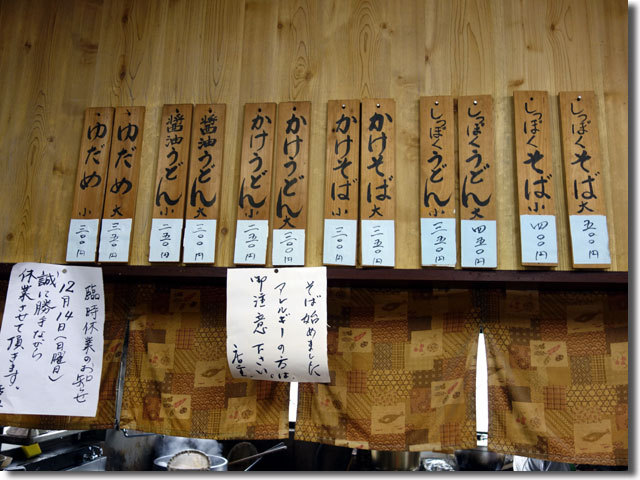 しっぽくそば大
五〇〇円
しっぽくそば小
四〇〇円
しっぽくうどん大
四五〇円
しっぽくうどん小
三五〇円
かけそば大
三五〇円
かけそば小
三〇〇円
かけうどん大
三〇〇円
かけうどん小
二五〇円
醤油うどん大
三〇〇円
醤油うどん小
二五〇円
ゆだめ大
三五〇円
ゆだめ小
三〇〇円
そば始めました
アレルギーの方は、
御注意下さい。
店主
臨時休業のお知らせ
12月14日(日曜日)
誠に勝手ながら
休業させて頂きます。